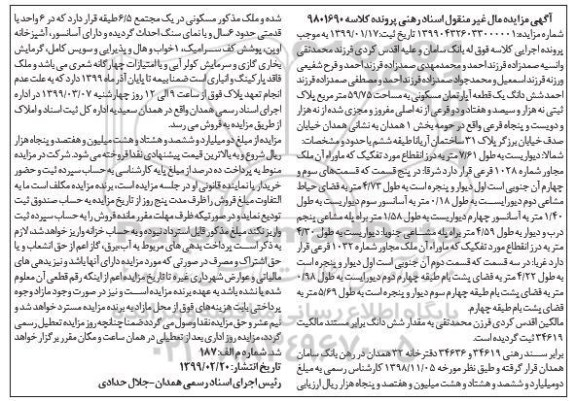 آگهی مزایده مال غیر منقول اسناد رهنی پرونده کلاسه ۹۸۰۱۶۹۰
شماره مزایده: ۱۳۹۹۰۴۳۲۶۰۳۳۰۰۰۰۰۱ تاریخ ثبت: ۱۳۹۹/۰۱/۱۷ به موجب
پرونده اجرایی کلاسه فوق له بانک سامان و علیه اقدس کردی فرزند محمدتقی
وانسیه صمدزاده فرزند احمد و محمدمهدی صمدزاده فرزند احمد و فرح شفیعی
ورزنه فرزند اسمعیل و محمدجواد صمدزاده فرزند احمد و مصطفی صمدزاده فرزند
احمد شش دانگ یک قطعه آپارتمان مسکونی به مساحت ۵۹/۷۵ متر مربع پلاک
ثبتی نه هزار و سیصد و هفتاد و دو فرعی از نه اصلی مفروز و مجزی شده از نه هزار
و دویست و پنجاه فرعی واقع در حومه بخش ۱ همدان به نشانی همدان خیابان
صدف خیابان برزگر پلاک ۳۱ ساختمان آریانا طبقه ششم با حدود و مشخصات:
شمالا: دیواریست به طول ۷/۶۱ متر به درز انقطاع مورد تفکیک که ماوراء آن ملک
مجاور شماره ۱۰۲۸ فرعی قرار دارد شرقا: در پنج قسمت که قسمت‌های سوم و
چهارم آن جنوبی است اول دیوار و پنجره است به طول ۴/۷۳ متر به فضای حیاط
مشاعی دوم دیواریست به طول ۰/۱۸ متر به آسانسور سوم دیواریست به طول
۱/۴۰ متر به آسانسور چهارم دیواریست به طول ۱/۵۸ متر به راه پله مشاعی پنجم
درب و دیوار به طول ۴/۵۹ متر به راه پله مشاعی جنوبا: دیواریست به طول ۴/۲۰
متر به درز انقطاع مورد تفکیک که ماوراء آن ملک مجاور شماره ۱۰۳۲ فرعی قرار
دارد غربا: در سه قسمت که قسمت دوم آن جنوبی است اول دیوار و پنجره است
به طول ۴/۲۲ متر به فضای پشت بام طبقه چهارم دوم دیواریست به طول ۰/۹۸
متر به فضای پشت بام طبقه چهارم سوم دیوار و پنجره است به طول ۵/۶۹ متر به
فضای پشت بام طبقه چهارم.
مالکین اقدس کردی فرزن محمدتقی به مقدار شش دانگ برابر مستند مالکیت
۳۴۶۱۹ ثبت گردیده است.
برابر سند رهنی ۳۴۶۱۹ و ۳۴۶۳۶ دفترخانه ۳۲ همدان در رهن بانک سامان
همدان قرار گرفته و طبق نظر مورخه ۱۳۹۸/۱۱/۰۵ کارشناس رسمی به مبلغ
دو میلیارد و ششصد و هشتاد و هشت میلیون و هفتصد و پنجاه هزار ریال ارزیابی
شده و ملک مذکور مسکونی در یک مجتمع ۶/۵ طبقه قرار دارد که در ۶ واحد با
قدمتی حدود ۶ سال و با نمای سنگ احداث گردیده و دارای آسانسور، آشپزخانه
اوپن، پوشش کف سرامیک، ۱ خواب و هال و پذیرایی و سویس کامل، گرمایش
بخاری گازی و سرمایش کولر آبی و با امتیازات چهارگانه شعری می باشد و ملک
فاقد پارکینگ و انباری است ضمنا بیمه تا پایان آذر ماه ۱۳۹۹ دارد که به علت عدم
انجام تعهد پلاک فوق از ساعت ۹ الی ۱۲ روز چهارشنبه ۱۳۹۹/۰۳/۰۷ در اداره
اجرای اسناد رسمی همدان واقع در همدان سعیدیه اداره کل ثبت اسناد و املاک
از طریق مزایده به فروش می رسد.
مزایده از مبلغ دو میلیارد و ششصد و هشتاد و هشت میلیون و هفتصد و پنجاه هزار
ریال شروع و به بالاترین قیمت پیشنهادی نقدا فروخته می شود. شرکت در مزایده
منوط به پرداخت ده درصد از مبلغ پایه کارشناسی به حساب سپرده ثبت و حضور
خریدار یا نماینده قانونی او در جلسه مزایده است، برنده مزایده مکلف است ما به
التفاوت مبلغ فروش را ظرف مدت پنج روز از تاریخ مزایده به حساب صندوق ثبت
تودیع نماید و در صورتیکه ظرف مهلت مقرر مانده فروش را به حساب سپرده ثبت
واریز نکند، مبلغ مذکور قابل استرداد نبوده و به حساب خزانه واریز خواهد شد. لازم
به ذکر است پرداخت بدهی های مربوط به آب، برق، گاز اعم از حق انشعاب و یا
حق اشتراک و مصرف در صورتی که مورد مزایده دارای آنها باشد و نیز بدهی های
مالیاتی و عوارض شهرداری غیره تا تاریخ مزایده اعم از اینکه رقم قطعی آن معلوم
شده یا نشده باشد به عهده برنده مزایده است و نیز در صورت وجود مازاد، وجوه
پرداختی بابت هزینه‌های فوق از محل مازاد به برنده مزایده مسترد خواهد شد و
نیم عشر و حق مزایده نقدا وصول می گردد ضمنا چنانچه روز مزایده تعطیل رسمی
گردد، مزایده روز اداری بعد از تعطیلی در همان ساعت و مکان مقرر برگزار خواهد
شد. شماره م الف: ۱۸۷
تاریخ انتشار: ۱۳۹۹/۰۲/۲۰
رئیس اجرای اسناد رسمی همدان - جلال حدادی